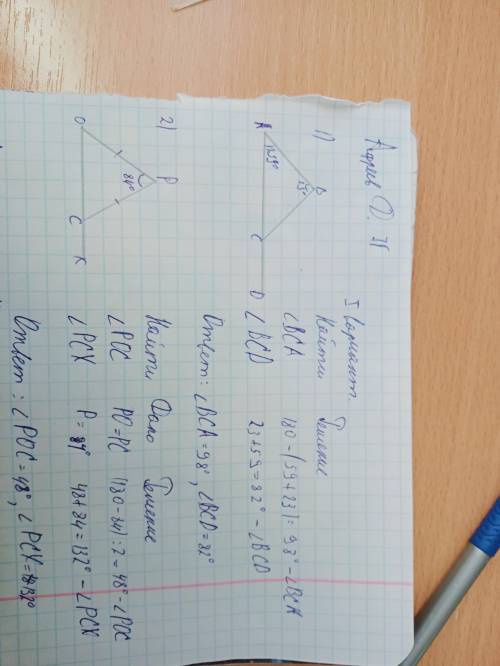 Адреев Д. 7Г
I вариант.
1)
A
B
C
D
159°
23°
Найти Решение
∠BCA 180-(59+23)=98°-∠BCA
∠BCD 23+59=82°-∠BCD
Ответ: ∠BCA=98°, ∠BCD=82°
2)
O
P
C
K
84°
Найти Дано Решение
∠POC PO=PC (180-84):2=48°-∠POC
∠PCK P=84° 48+84=132°-∠PCK
Ответ: ∠POC=48°, ∠PCK=132°